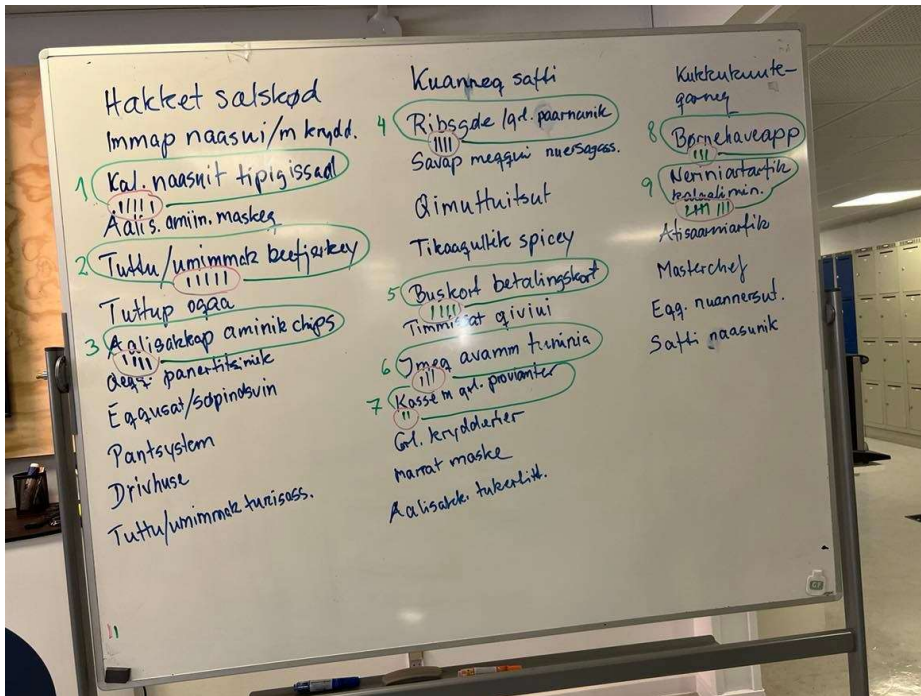 Hakket sælskød
Immap naasui/m krydd.
1 Kal. naasuit tipigissaat
Aalis. amiin. maskeq
2 Tuttu/umimmak beefjerkey
Tuttup oqaa
3 Aalisakkap aminik chips
panertitsinik
Eqqusat/søpindsvin
Pantsystem
Drivhuse
Tuttu/umimmak tunisass.
Kuanneq safti
4 Ribsgele/grl. paarnanik
Savap meqqui nuersagass.
Qimuttuitsut
Tikaagullik spicey
5 Buskort betalingskort
Timmissat qivini
6 Imeq avamm tuninia
7 Kasse m grl. provianter
Grl. krydderier
marrat maske
Aalisakk. tukerlitt.
Kukkukuute-
qarneq
8 Børnehaveapp
9 Neriniartarfik
kalaalimin.
Atisaarniarfik
Masterchef
Eqq. nuannersut.
Safti naasunik